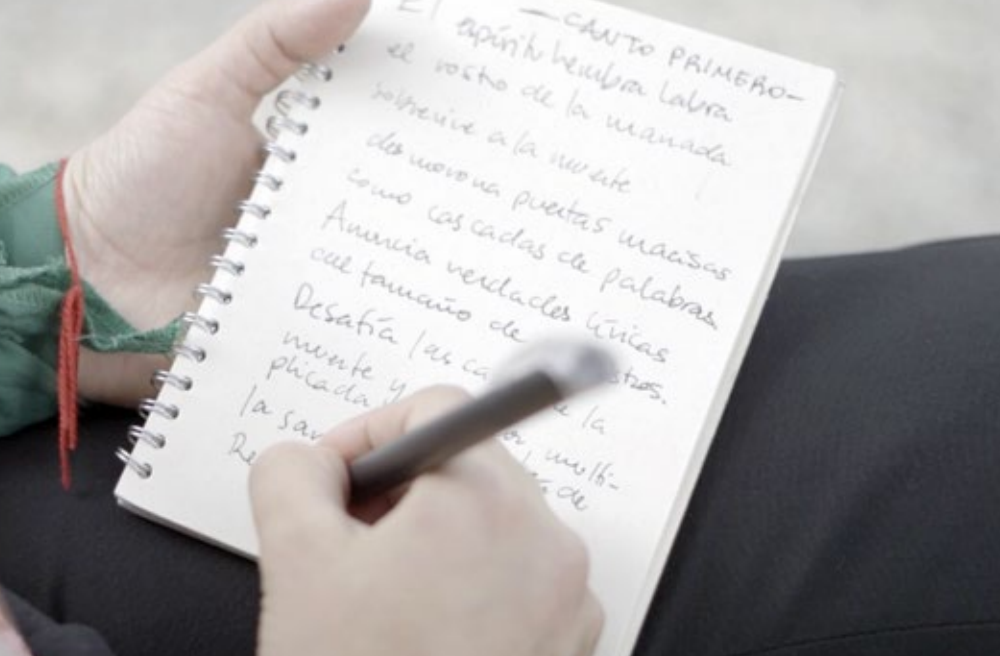 — CANTO PRIMERO —
El espíritu hembra labra
el rostro de la manada
sobrevive a la muerte
desmorona puertas macisas
como cascadas de palabras
Anuncia verdades líricas
del tamaño de
Desafía las de la
muerte y multi-
plicada de
la